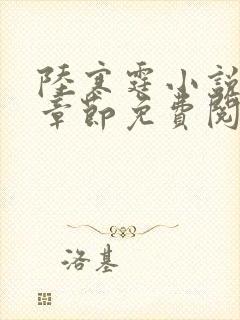 陸寒霆小說
章節免費閱
洛基